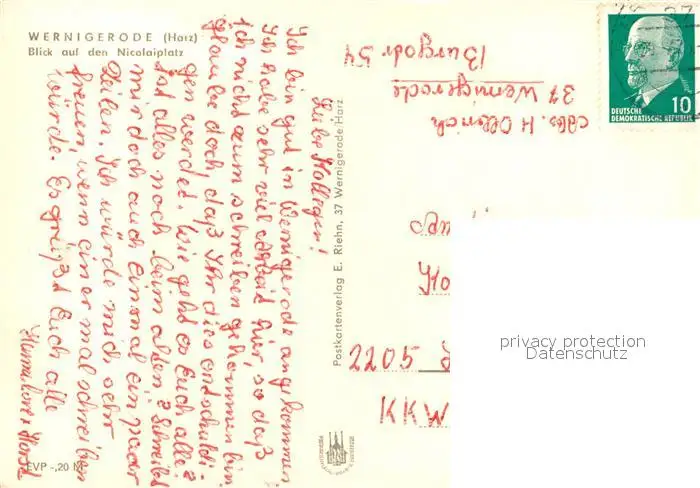 WERNIGERODE (Harz)
Blick auf den Nicolaiplatz
Liebe Kollegen!
Ich bin gut in Wernigerode angekommen
Ich habe sehr viel Arbeit hier, so daß
ich nicht zum schreiben gekommen bin
glaube doch, daß Ihr dies entschuldi-
gen werdet. Wie geht es Euch alle?
Ist alles noch beim alten? Schreibt
mir doch auch einmal ein paar
Zeilen. Ich würde mich sehr
freuen, wenn einer mal schreiben
würde. Es grüßt Euch alle
Horst
EVP -,20 M
Postkartenverlag E. Riehn, 37 Wernigerode/Harz
Abs. H
37 Wernigerode
Burgstr 54
10
DEUTSCHE
DEMOKRATISCHE REPUBLIK
2205
KKW
privacy protection
Datenschutz